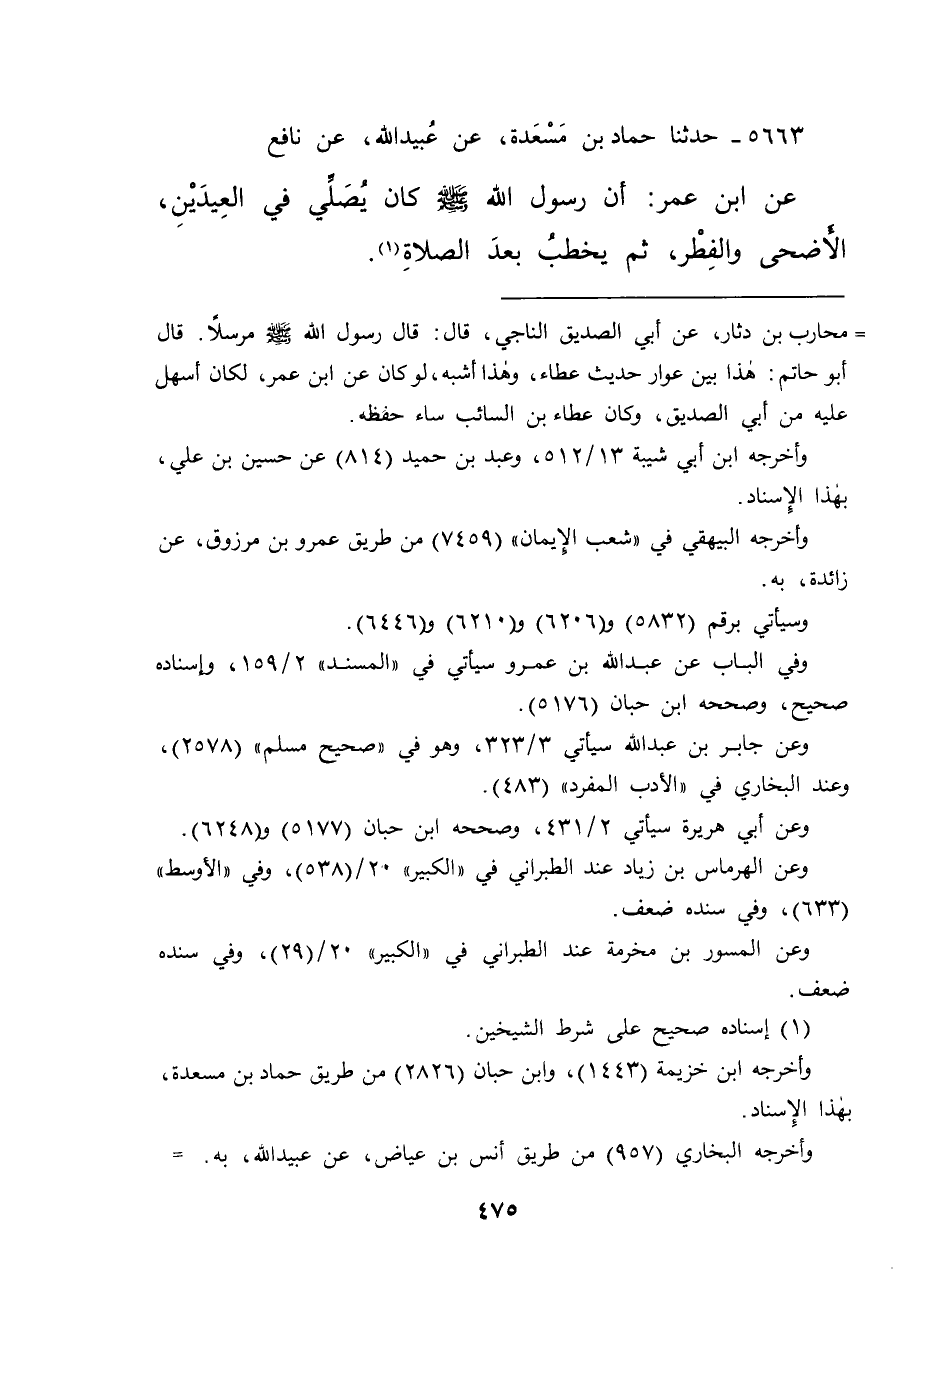 ٥٦٦٣ ـ حدثنا حماد بن مَسْعَدة، عن عُبيدالله، عن نافع
عن ابن عمر: أن رسول الله ﷺ كان يُصَلِّي في العِيدَيْنِ،
الأَضحى والفِطْر، ثم يخطبُ بعدَ الصلاةِ(١).
= محارب بن دثار، عن أبي الصديق الناجي، قال: قال رسول الله ﷺ مرسلًا. قال
أبو حاتم: هٰذا بين عوار حديث عطاء، وهٰذا أشبه، لو كان عن ابن عمر، لكان أسهل
عليه من أبي الصديق، وكان عطاء بن السائب ساء حفظه.
وأخرجه ابن أبي شيبة ٥١٢/١٣، وعبد بن حميد (٨١٤) عن حسين بن علي،
بهٰذا الإِسناد.
وأخرجه البيهقي في «شعب الإِيمان» (٧٤٥٩) من طريق عمرو بن مرزوق، عن
زائدة، به.
وسيأتي برقم (٥٨٣٢) و(٦٢٠٦) و(٦٢١٠) و(٦٤٤٦).
وفي الباب عن عبدالله بن عمرو سيأتي في «المسند» ١٥٩/٢، وإسناده
صحيح، وصححه ابن حبان (٥١٧٦).
وعن جابر بن عبدالله سيأتي ٣٢٣/٣، وهو في «صحيح مسلم» (٢٥٧٨)،
وعند البخاري في «الأدب المفرد» (٤٨٣).
وعن أبي هريرة سيأتي ٤٣١/٢، وصححه ابن حبان (٥١٧٧) و(٦٢٤٨).
وعن الهرماس بن زياد عند الطبراني في «الكبير» ٢٠/(٥٣٨)، وفي «الأوسط»
(٦٣٣)، وفي سنده ضعف.
وعن المسور بن مخرمة عند الطبراني في «الكبير» ٢٠/(٢٩)، وفي سنده
ضعف.
(١) إسناده صحيح على شرط الشيخين.
وأخرجه ابن خزيمة (١٤٤٣)، وابن حبان (٢٨٢٦) من طريق حماد بن مسعدة،
بهٰذا الإِسناد.
وأخرجه البخاري (٩٥٧) من طريق أنس بن عياض، عن عبيدالله، به. =
٤٧٥